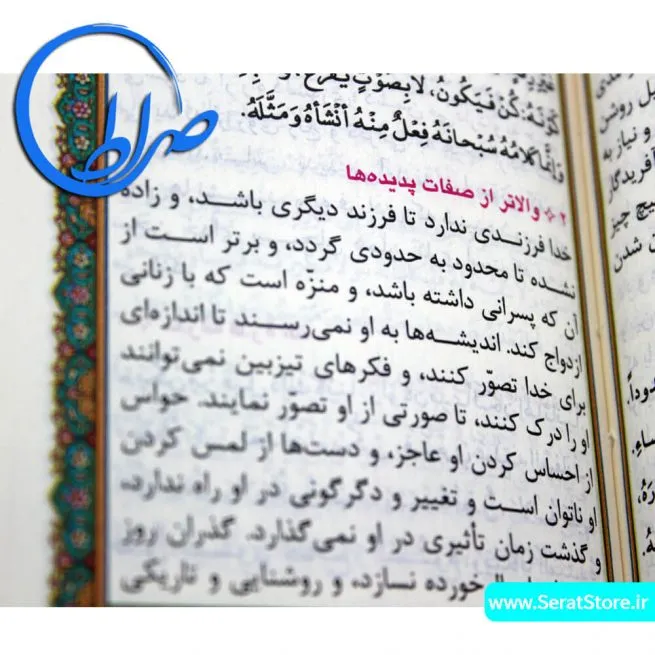 صراط
كَوْنَهُ: كُنْ فَيَكُونُ، لَا بِصَوْتٍ يَقْرَعُ،
وَإِنَّمَا كَلَامُهُ سُبْحَانَهُ فِعْلٌ مِنْهُ أَنْشَأَهُ وَمَثَّلَهُ.
۲ والاتر از صفات پدیده‌ها
خدا فرزندی ندارد تا فرزند دیگری باشد، و زاده
نشده تا محدود به حدودی گردد، و برتر است از
آن که پسرانی داشته باشد، و منزّه است که با زنانی
ازدواج کند. اندیشه‌ها به او نمی‌رسند تا اندازه‌ای
برای خدا تصوّر کنند، و فکرهای تیزبین نمی‌توانند
او را درک کنند، تا صورتی از او تصوّر نمایند. حواس
از احساس کردن او عاجز، و دست‌ها از لمس کردن
او ناتوان است و تغییر و دگرگونی در او راه ندارد،
و گذشت زمان تأثیری در او نمی‌گذارد. گذران روز
خورده نسازد، و روشنایی و تاریکی
یل روشن
و نیاز به
آفریدگار
هیچ چیز
ن شدن
www.SeratStore.ir